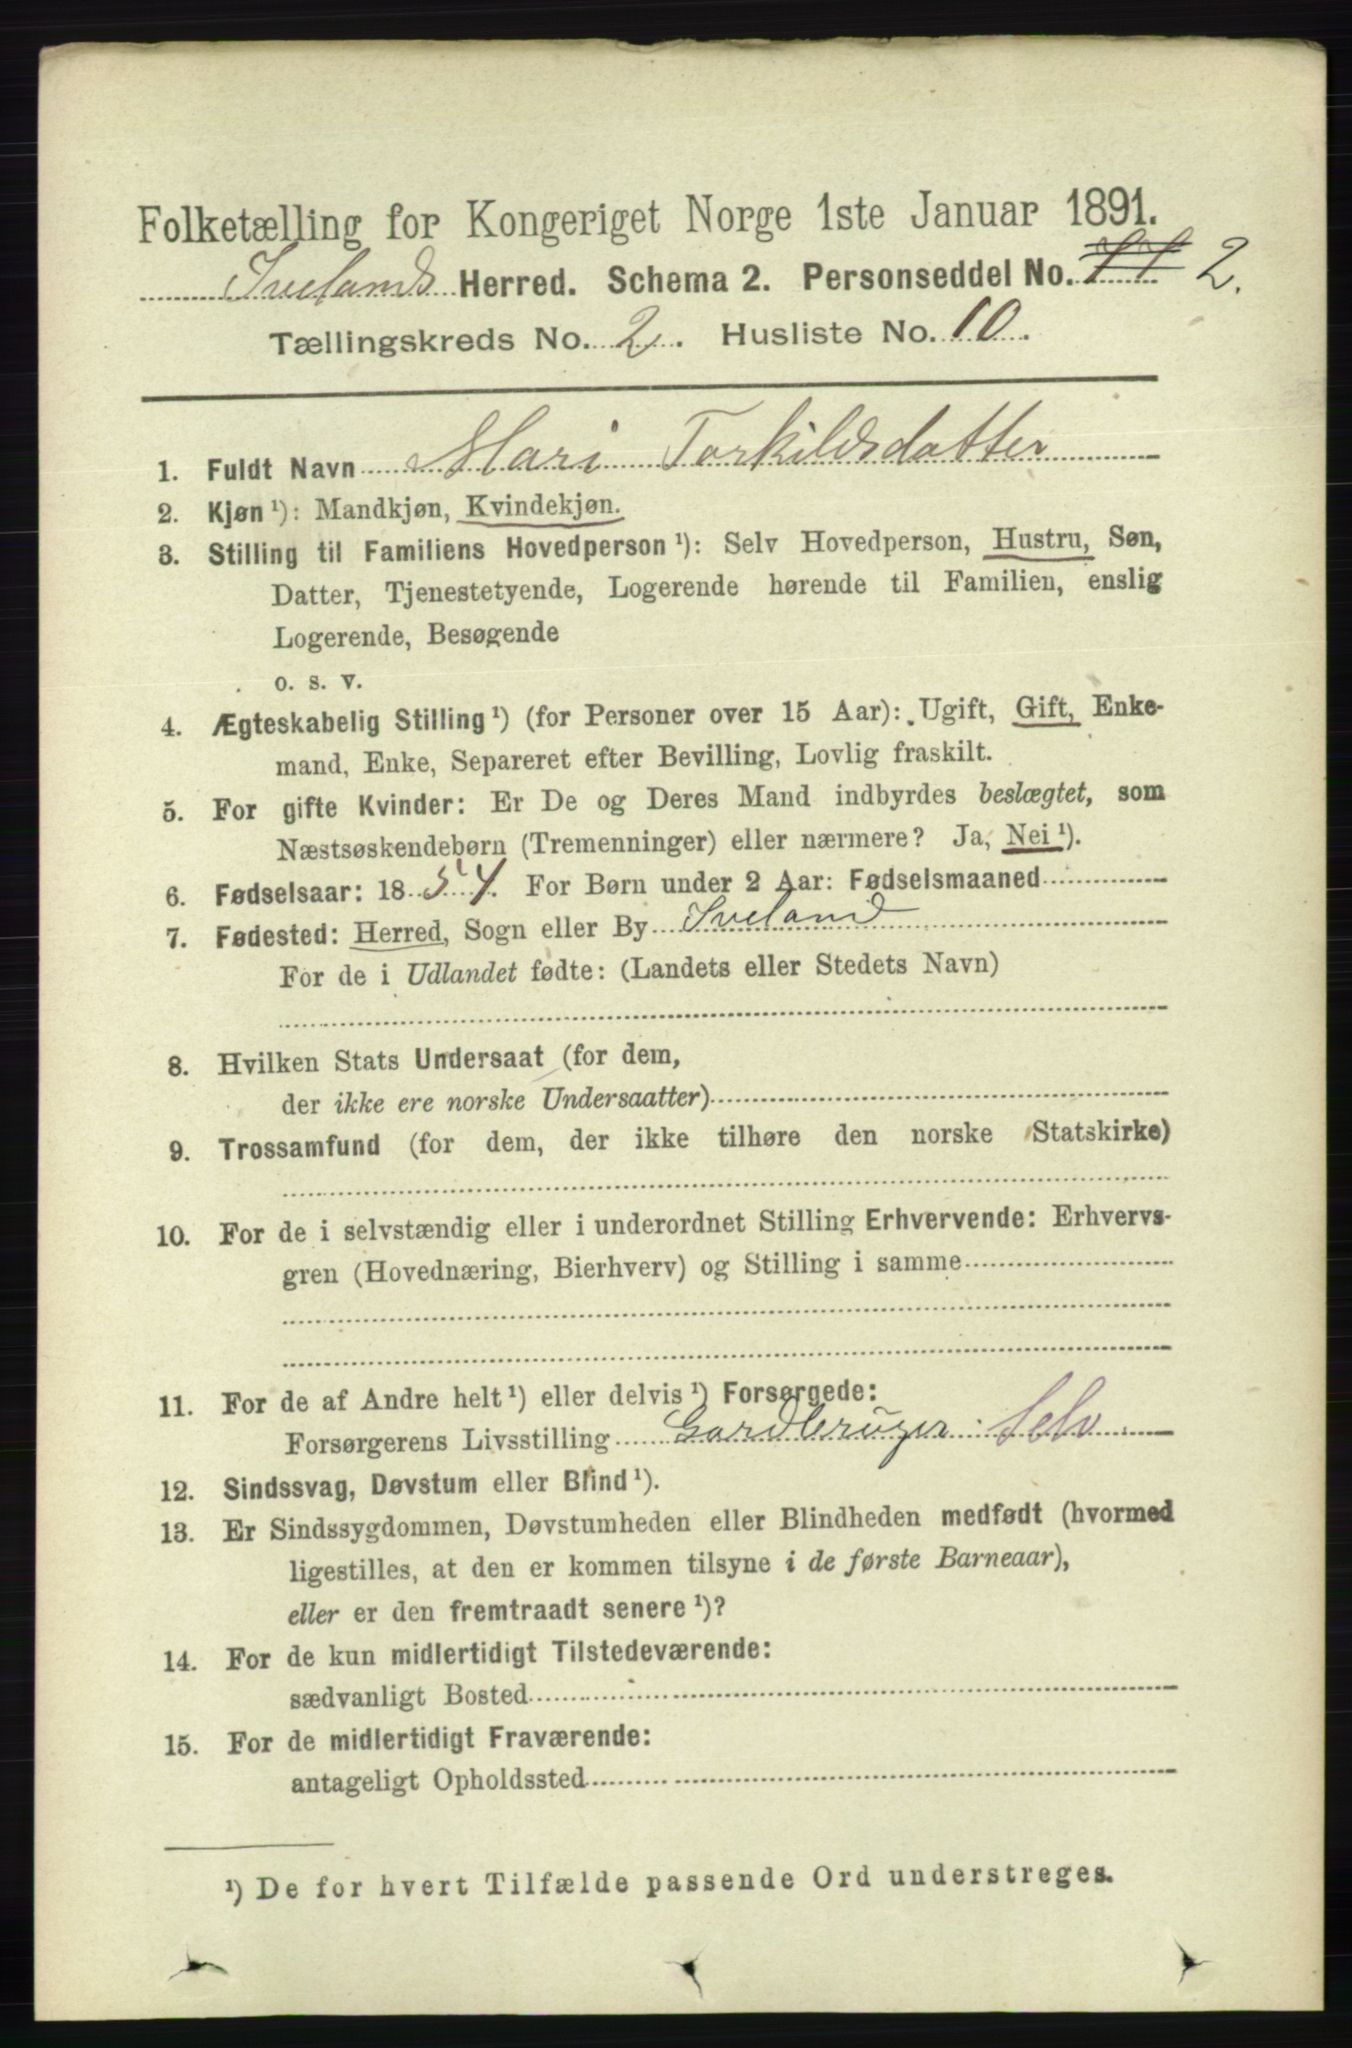 Folketælling for Kongeriget Norge 1ste Januar 1891.
Ivelands Herred. Schema 2. Personseddel No. 11 2.
Tællingskreds No. 2. Husliste No. 10.
1. Fuldt Navn Mari Torkildsdatter
2. Kjøn ¹): Mandkjøn, Kvindekjøn.
3. Stilling til Familiens Hovedperson ¹): Selv Hovedperson, Hustru, Søn,
Datter, Tjenestetyende, Logerende hørende til Familien, enslig
Logerende, Besøgende
o. s. v.
4. Ægteskabelig Stilling ¹) (for Personer over 15 Aar): Ugift, Gift, Enke-
mand, Enke, Separeret efter Bevilling, Lovlig fraskilt.
5. For gifte Kvinder: Er De og Deres Mand indbyrdes beslægtet, som
Næstsøskendebørn (Tremenninger) eller nærmere? Ja, Nei ¹).
6. Fødselsaar: 1854. For Børn under 2 Aar: Fødselsmaaned
7. Fødested: Herred, Sogn eller By Iveland
For de i Udlandet fødte: (Landets eller Stedets Navn)
8. Hvilken Stats Undersaat (for dem,
der ikke ere norske Undersaatter)
9. Trossamfund (for dem, der ikke tilhøre den norske Statskirke)
10. For de i selvstændig eller i underordnet Stilling Erhvervende: Erhvervs-
gren (Hovednæring, Bierhverv) og Stilling i samme
11. For de af Andre helt ¹) eller delvis ¹) Forsørgede:
Forsørgerens Livsstilling Gardbruger. Selv
12. Sindssvag, Døvstum eller Blind ¹).
13. Er Sindssygdommen, Døvstumheden eller Blindheden medfødt (hvormed
ligestilles, at den er kommen tilsyne i de første Barneaar),
eller er den fremtraadt senere ¹)?
14. For de kun midlertidigt Tilstedeværende:
sædvanligt Bosted
15. For de midlertidigt Fraværende:
antageligt Opholdssted
¹) De for hvert Tilfælde passende Ord understreges.